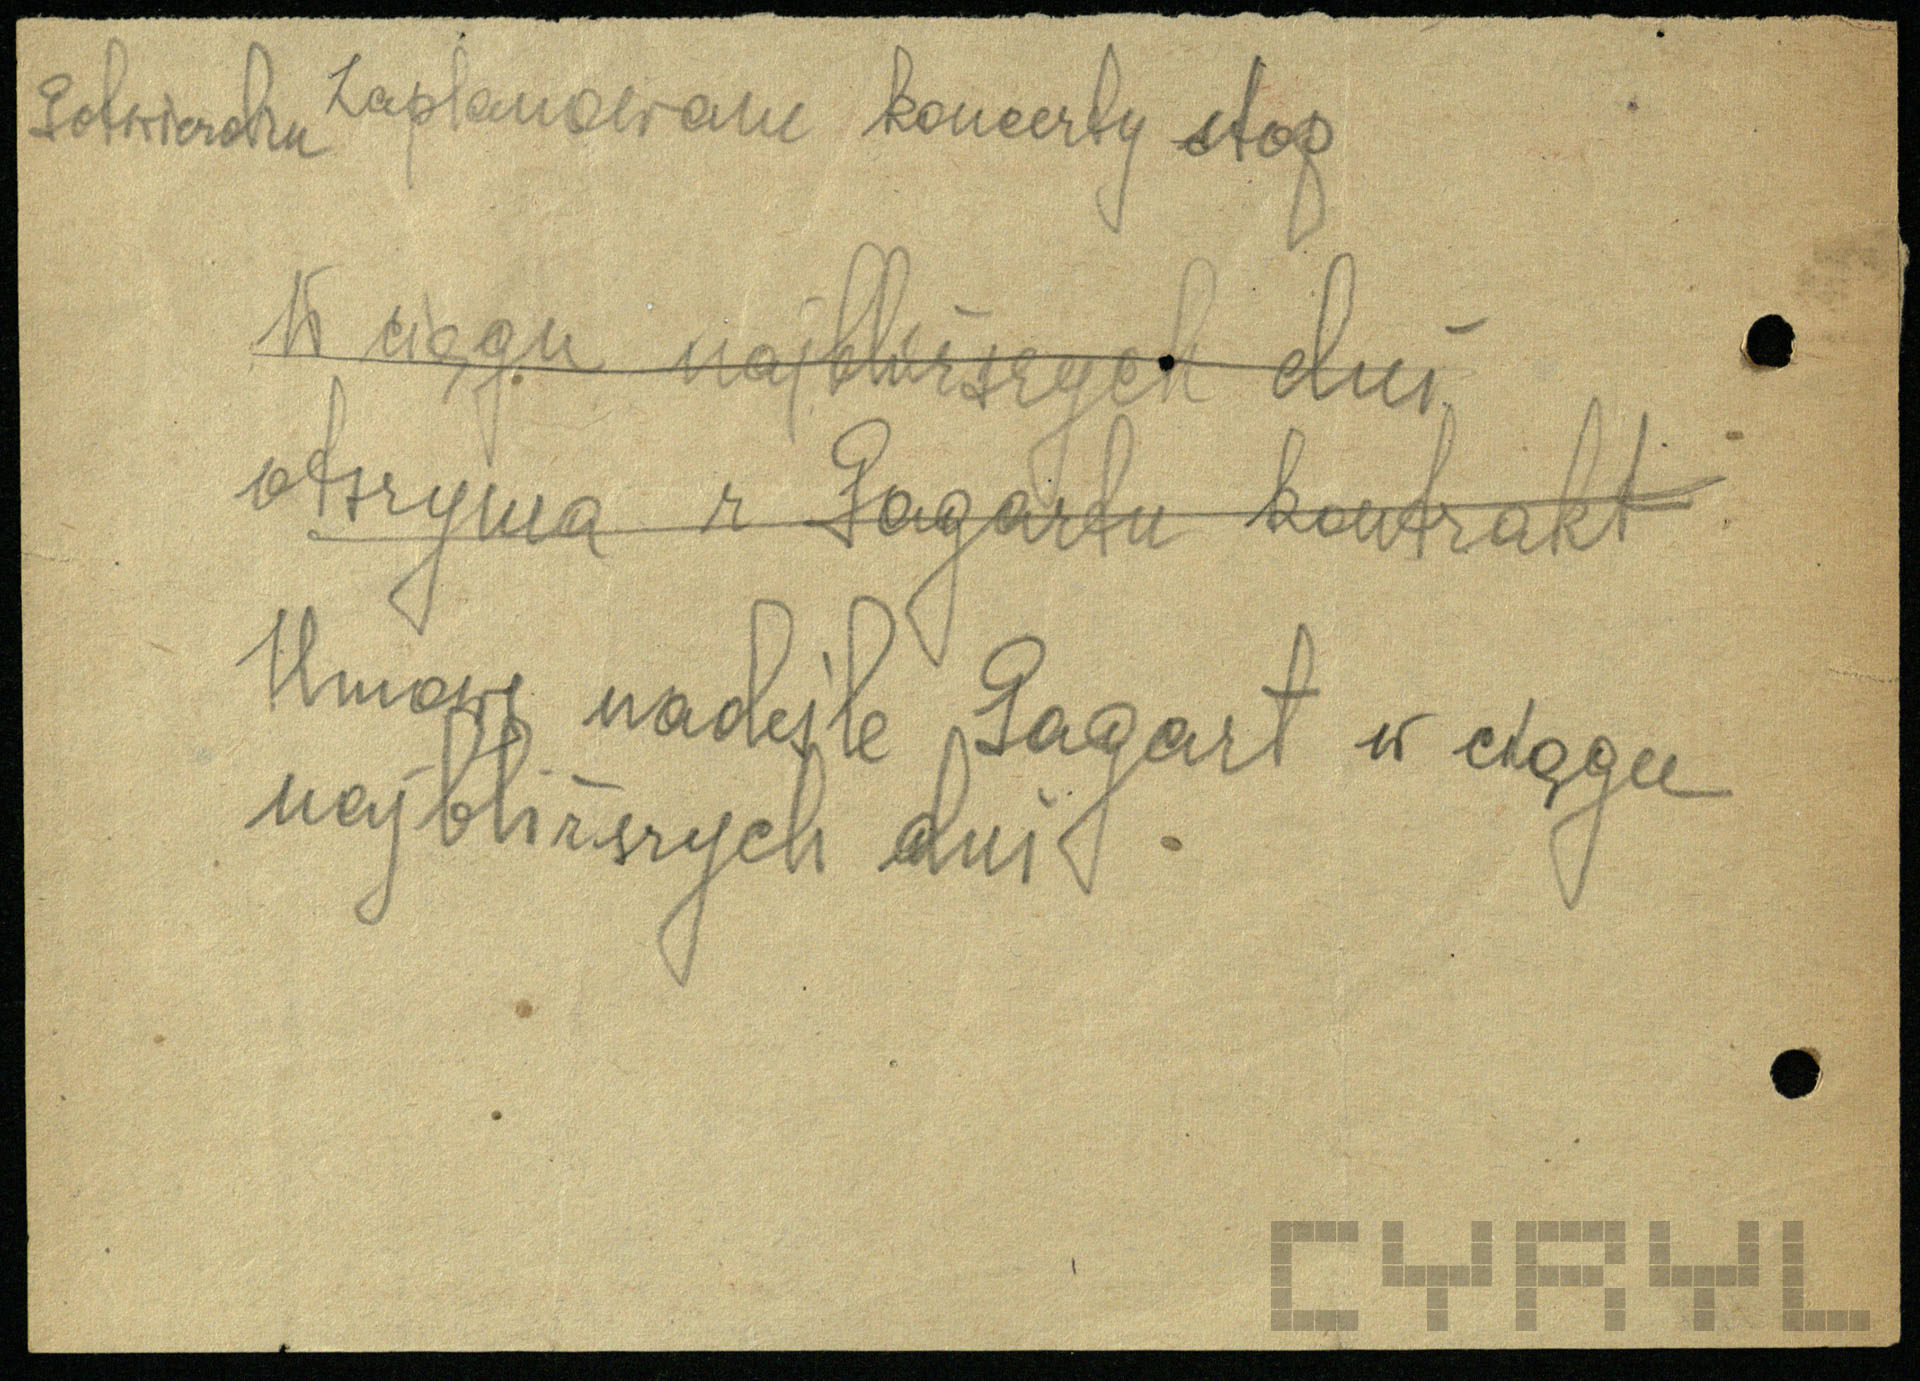 Potwierdzu Zaplanowane koncerty stop
W ciągu najbliższych dni
otrzyma z Pagartu kontrakt
Umowę nadeśle Pagart w ciągu
najbliższych dni
CYRYL